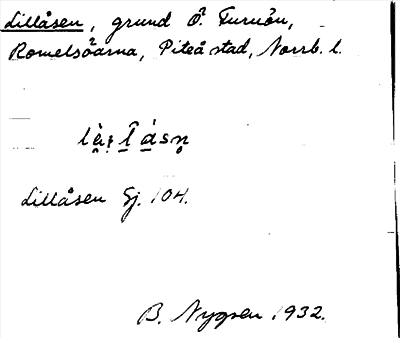 Lillåsen, grund Ö. Furuön,
Romelsöarna, Piteå stad, Norrb. l.
Lillåsen Gj. 104.
B. Nygren 1932.